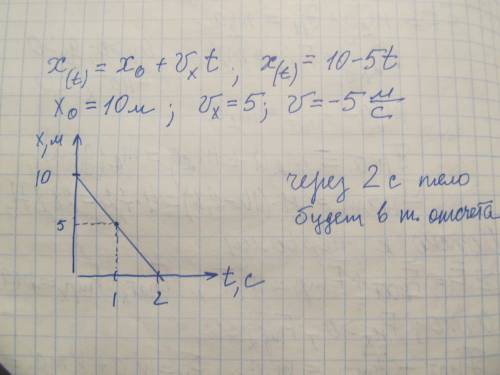 x(t) = x₀ + vₓt ; x(t) = 10 - 5t
x₀ = 10м ; vₓ = 5; v = -5 м/с
x, м
10
5
1 2
t, с
через 2 с тело
будет в т. отсчета